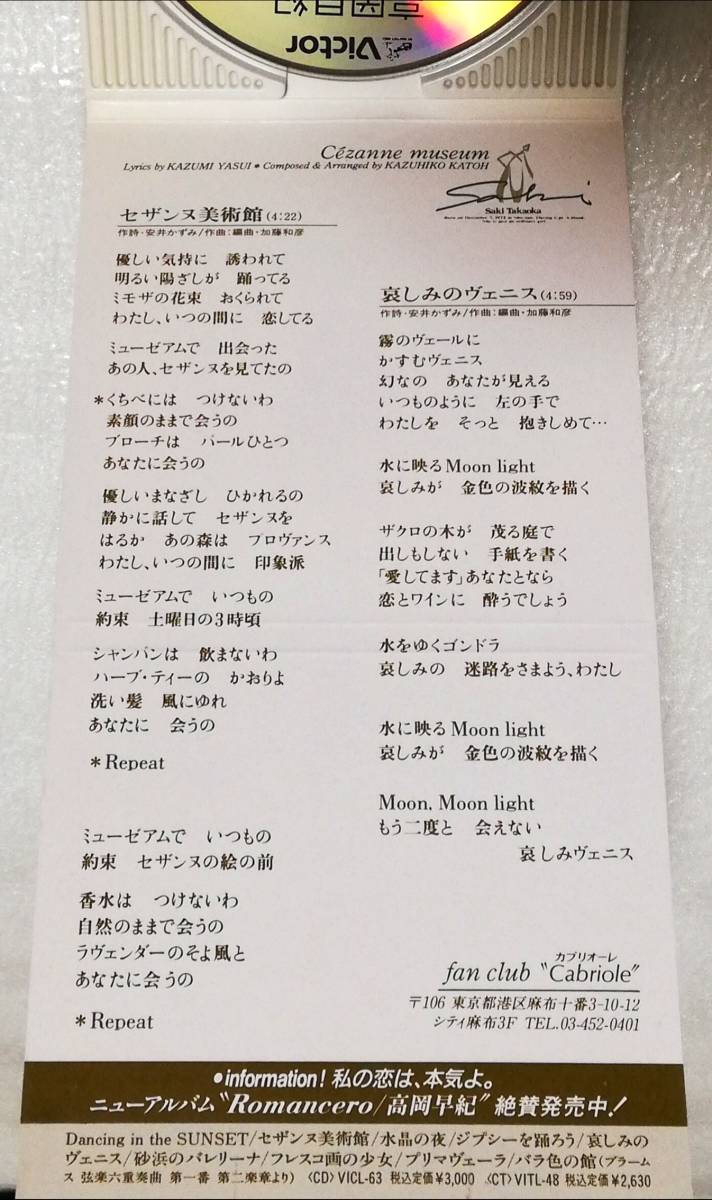 高岡早紀
Victor
Cézanne museum
Lyrics by KAZUMI YASUI • Composed & Arranged by KAZUHIKO KATOH
Saki
Saki Takaoka
セザンヌ美術館(4:22)
作詩・安井かずみ/作曲:編曲・加藤和彦
優しい気持に 誘われて
明るい陽ざしが 踊ってる
ミモザの花束 おくられて
わたし、いつの間に 恋してる
ミューゼアムで 出会った
あの人、セザンヌを見てたの
*くちべには つけないわ
素顔のままで会うの
ブローチは パールひとつ
あなたに会うの
優しいまなざし ひかれるの
静かに話して セザンヌを
はるか あの森は プロヴァンス
わたし、いつの間に 印象派
ミューゼアムで いつもの
約束 土曜日の3時頃
シャンパンは 飲まないわ
ハーブ・ティーの かおりよ
洗い髪 風にゆれ
あなたに 会うの
*Repeat
ミューゼアムで いつもの
約束 セザンヌの絵の前
香水は つけないわ
自然のままで会うの
ラヴェンダーのそよ風と
あなたに会うの
*Repeat
哀しみのヴェニス(4:59)
作詩・安井かずみ/作曲:編曲・加藤和彦
霧のヴェールに
かすむヴェニス
幻なの あなたが見える
いつものように 左の手で
わたしを そっと 抱きしめて…
水に映るMoon light
哀しみが 金色の波紋を描く
ザクロの木が 茂る庭で
出しもしない 手紙を書く
「愛してます」あなたとなら
恋とワインに 酔うでしょう
水をゆくゴンドラ
哀しみの 迷路をさまよう、わたし
水に映るMoon light
哀しみが 金色の波紋を描く
Moon, Moon light
もう二度と 会えない
哀しみヴェニス
カブリオーレ
fan club “Cabriole”
〒106 東京都港区麻布十番3-10-12
シティ麻布3F TEL.03-452-0401
•information! 私の恋は、本気よ。
ニューアルバム“Romancero/高岡早紀”絶賛発売中!
Dancing in the SUNSET/セザンヌ美術館/水晶の夜/ジプシーを踊ろう/哀しみの
ヴェニス/砂浜のバレリーナ/フレスコ画の少女/プリマヴェーラ/バラ色の館(ブラーム
ス 弦楽六重奏曲 第一番 第二楽章より) 〈CD〉VICL-63 税込定価¥3,000 〈CT〉VITL-48 税込定価¥2,630